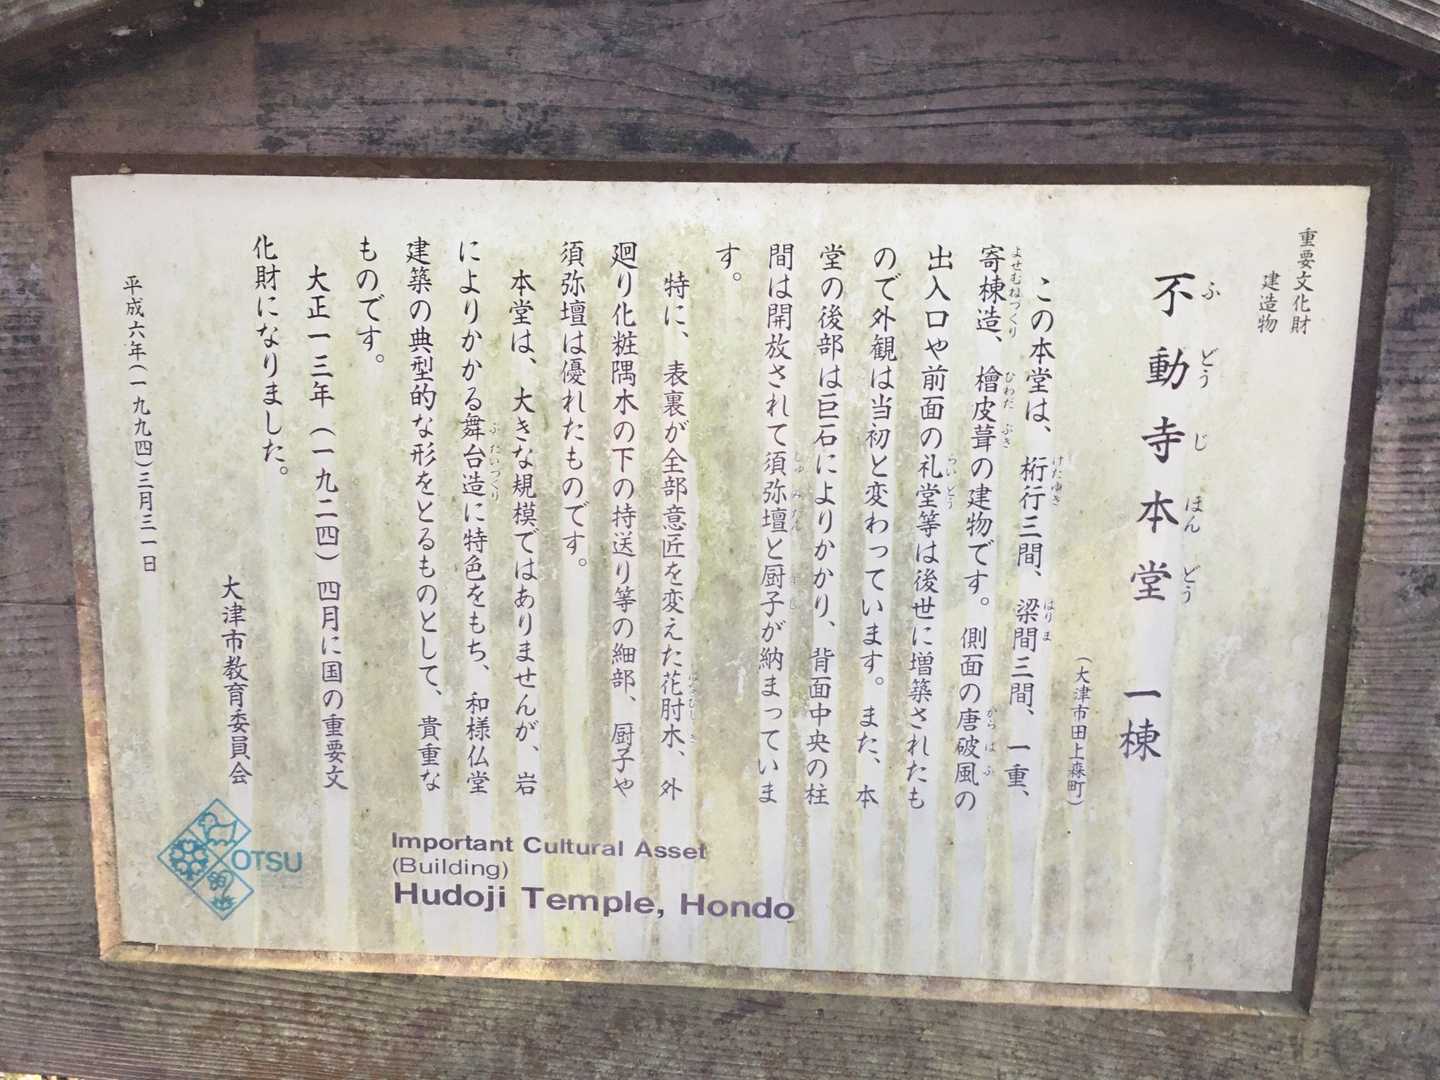 重要文化財
建造物
不動寺本堂 一棟
ふどうじほんどう
(大津市田上森町)
この本堂は、桁行三間、梁間三間、一重、
けたゆき はりま
寄棟造、檜皮葺の建物です。側面の唐破風の
よせむねづくり ひわだぶき からはふ
出入口や前面の礼堂等は後世に増築されたも
らいどう
ので外観は当初と変わっています。また、本
堂の後部は巨石によりかかり、背面中央の柱
間は開放されて須弥壇と厨子が納まっていま
す。
特に、表裏が全部意匠を変えた花肘木、外
廻り化粧隅木の下の持送り等の細部、厨子や
須弥壇は優れたものです。
本堂は、大きな規模ではありませんが、岩
によりかかる舞台造に特色をもち、和様仏堂
ぶたいづくり
建築の典型的な形をとるものとして、貴重な
ものです。
大正一三年(一九二四)四月に国の重要文
化財になりました。
大津市教育委員会
平成六年(一九九四)三月三一日
OTSU
Important Cultural Asset
(Building)
Hudoji Temple, Hondo